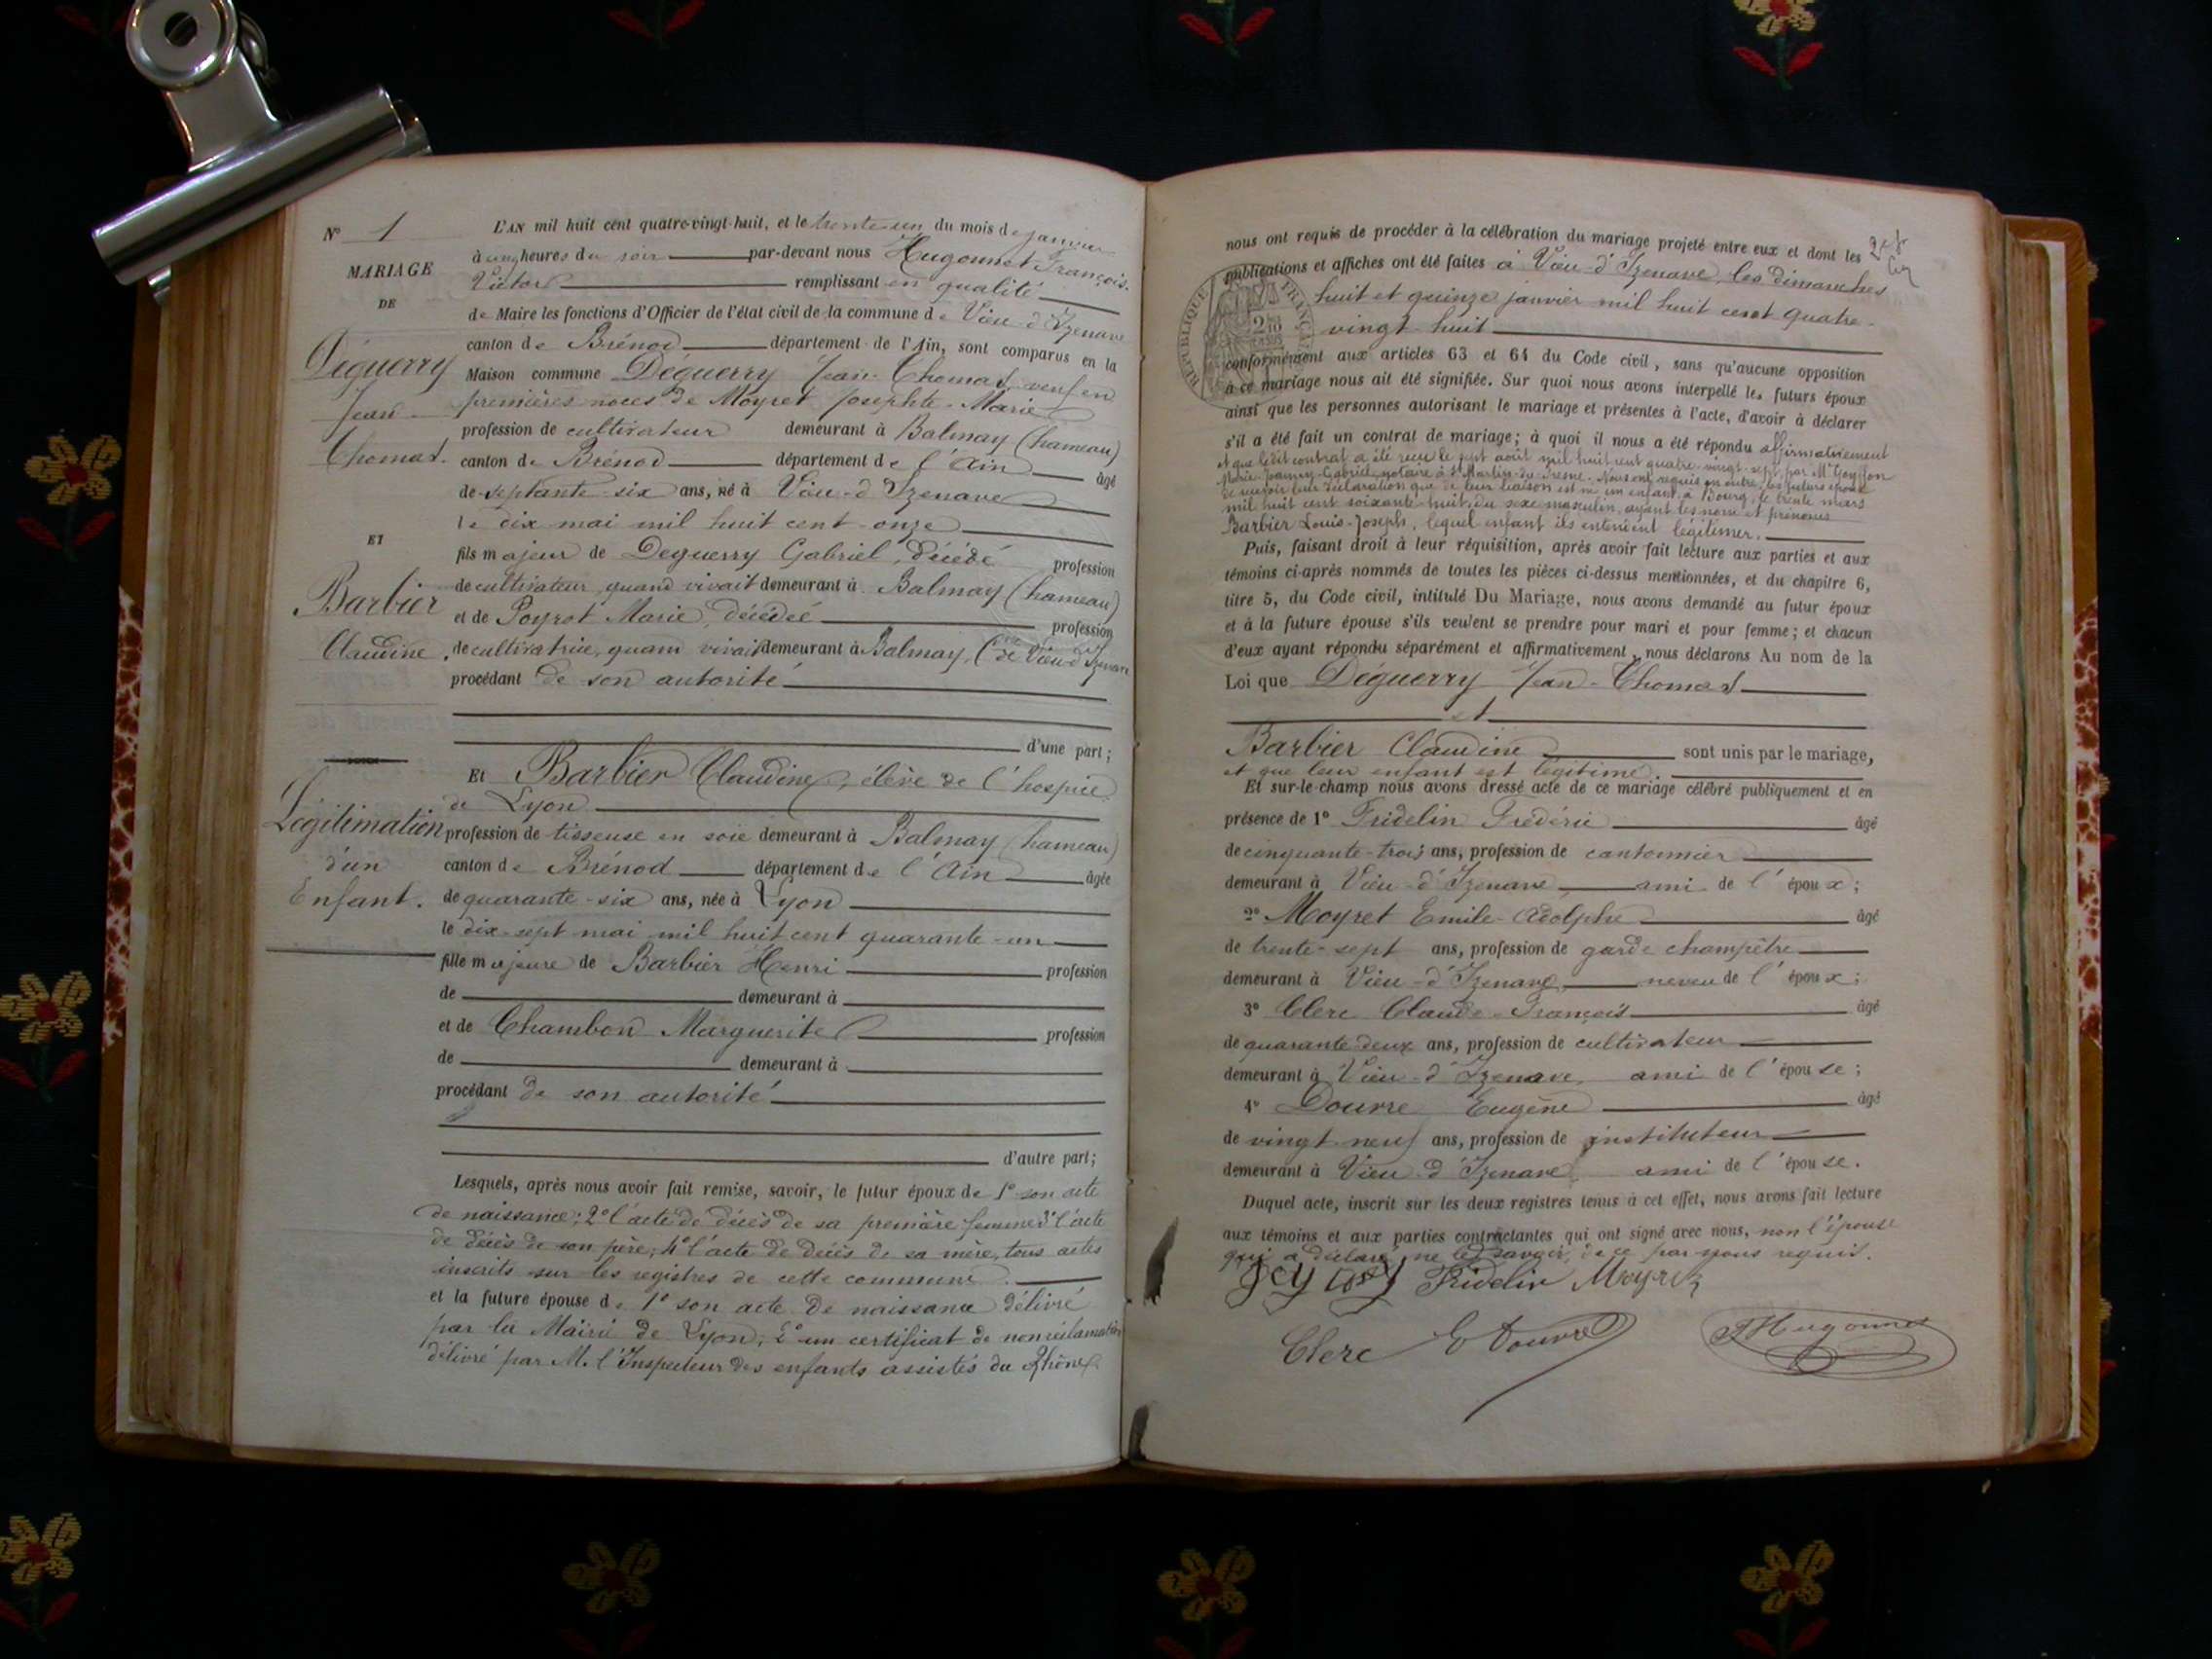 N° 1
MARIAGE
DE
Déguerry
Jean
Thomas.
ET
Barbier
Claudine
Légitimation
d'un
Enfant.
L'AN mil huit cent quatre-vingt-huit, et le trente-un du mois de janvier
à cinq heures du soir par-devant nous Hugonnet François-
Victor remplissant en qualité
de Maire les fonctions d'Officier de l'état civil de la commune de Vieu-d'Izenave
canton de Brénod département de l'Ain, sont comparus en la
Maison commune Déguerry Jean-Thomas, veuf en
premières noces de Moyret Josephte-Marie
profession de cultivateur demeurant à Balmay (hameau)
canton de Brénod département de l'Ain âgé
de septante-six ans, né à Vieu-d'Izenave
le dix mai mil huit cent onze
fils majeur de Deguerry Gabriel, décédé profession
de cultivateur, quand vivait demeurant à Balmay (hameau)
et de Poyrot Marie, décédée profession
de cultivatrice, quand vivait demeurant à Balmay, (de Vieu-d'Izenave
procédant de son autorité
d'une part;
Et Barbier Claudine, élève de l'hospice
de Lyon
profession de tisseuse en soie demeurant à Balmay (hameau)
canton de Brénod département de l'Ain âgée
de quarante-six ans, née à Lyon
le dix-sept mai mil huit cent quarante-un
fille majeure de Barbier Henri profession
de demeurant à
et de Chambon Marguerite profession
de demeurant à
procédant de son autorité
d'autre part;
Lesquels, après nous avoir fait remise, savoir, le futur époux de 1° son acte
de naissance; 2° l'acte de décès de sa première femme; 3° l'acte
de décès de son père; 4° l'acte de décès de sa mère, tous actes
inscrits sur les registres de cette commune.
et la future épouse de 1° son acte de naissance délivré
par la Mairie de Lyon; 2° un certificat de non réclamation
délivré par M. l'Inspecteur des enfants assistés du Rhône
nous ont requis de procéder à la célébration du mariage projeté entre eux et dont les
publications et affiches ont été faites à Vieu-d'Izenave, les dimanches
huit et quinze janvier mil huit cent quatre-
vingt-huit
RÉPUBLIQUE FRANÇAISE
conformément aux articles 63 et 64 du Code civil, sans qu'aucune opposition
à ce mariage nous ait été signifiée. Sur quoi nous avons interpellé les futurs époux
ainsi que les personnes autorisant le mariage et présentes à l'acte, d'avoir à déclarer
s'il a été fait un contrat de mariage; à quoi il nous a été répondu affirmativement
et que ledit contrat a été reçu le sept août mil huit cent quatre-vingt-sept, par Me Goyffon
Marie-Joanny-Gabriel, notaire à St Martin-du-Fresne. Nous ont requis en outre, les futurs époux
de recevoir leur déclaration que de leur liaison est né un enfant, à Bourg, le trente mars
mil huit cent soixante-huit, du sexe masculin, ayant les nom et prénoms
Barbier Louis-Joseph, lequel enfant ils entendent légitimer.
Puis, faisant droit à leur réquisition, après avoir fait lecture aux parties et aux
témoins ci-après nommés de toutes les pièces ci-dessus mentionnées, et du chapitre 6,
titre 5, du Code civil, intitulé Du Mariage, nous avons demandé au futur époux
et à la future épouse s'ils veulent se prendre pour mari et pour femme; et chacun
d'eux ayant répondu séparément et affirmativement, nous déclarons Au nom de la
Loi que Déguerry Jean-Thomas
et
Barbier Claudine sont unis par le mariage,
et que leur enfant est légitimé.
Et sur-le-champ nous avons dressé acte de ce mariage célébré publiquement et en
présence de 1° Fridelin Frédéric âgé
de cinquante-trois ans, profession de cantonnier
demeurant à Vieu-d'Izenave ami de l'époux;
2° Moyret Emile-Adolphe âgé
de trente-sept ans, profession de garde champêtre
demeurant à Vieu-d'Izenave, neveu de l'époux;
3° Clerc Claude-François âgé
de quarante deux ans, profession de cultivateur
demeurant à Vieu-d'Izenave, ami de l'épouse;
4° Douvre Eugène âgé
de vingt neuf ans, profession de instituteur
demeurant à Vieu-d'Izenave, ami de l'épouse.
Duquel acte, inscrit sur les deux registres tenus à cet effet, nous avons fait lecture
aux témoins et aux parties contractantes qui ont signé avec nous, non l'épouse
qui a déclaré ne le savoir, de ce par nous requis.
Fridelin Moyret
Clerc E Douvre Hugonnet